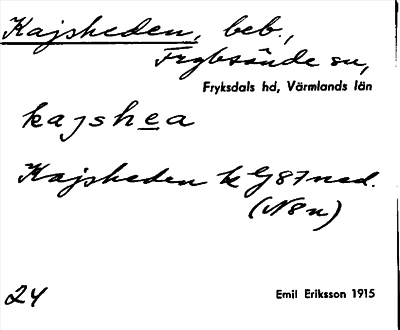 Kajsheden, beb.,
Frykände sn,
Fryksdals hd, Värmlands län
kajshea
Kajsheden k G87ned.
(N8n)
24 Emil Eriksson 1915